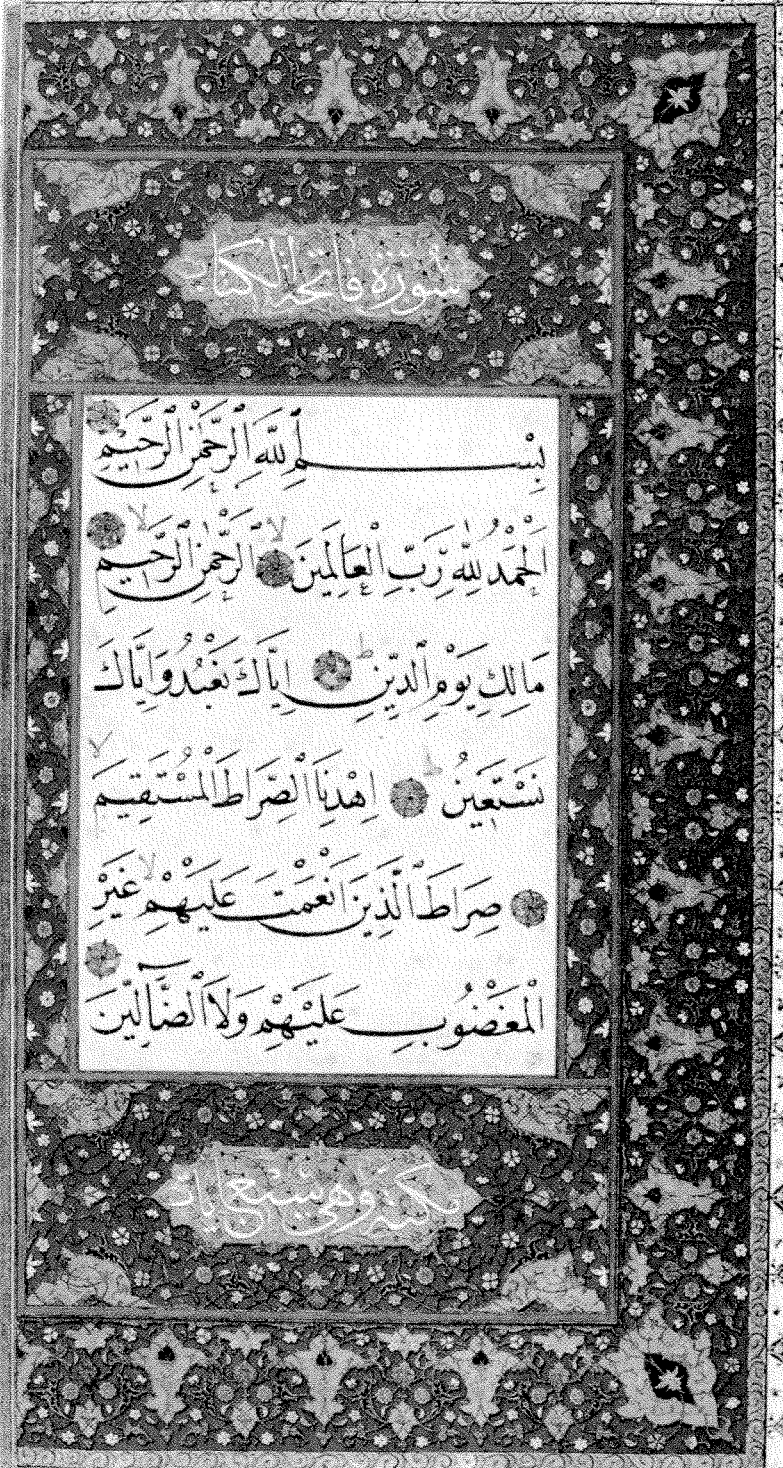 سُورَةُ فَاتِحَةِ الْكِتَابِ
بِسْمِ اللَّهِ الرَّحْمٰنِ الرَّحِيمِ
اَلْحَمْدُ لِلّٰهِ رَبِّ الْعَالَمِينَ لا الرَّحْمٰنِ الرَّحِيمِ لا
مَالِكِ يَوْمِ الدِّينِ ط اِيَّاكَ نَعْبُدُ وَاِيَّاكَ
نَسْتَعِينُ ط اِهْدِنَا الصِّرَاطَ الْمُسْتَقِيمَ لا
صِرَاطَ الَّذِينَ اَنْعَمْتَ عَلَيْهِمْ لا غَيْرِ
الْمَغْضُوبِ عَلَيْهِمْ وَلَا الضَّٓالِّينَ
مكية وهي سبع آيات